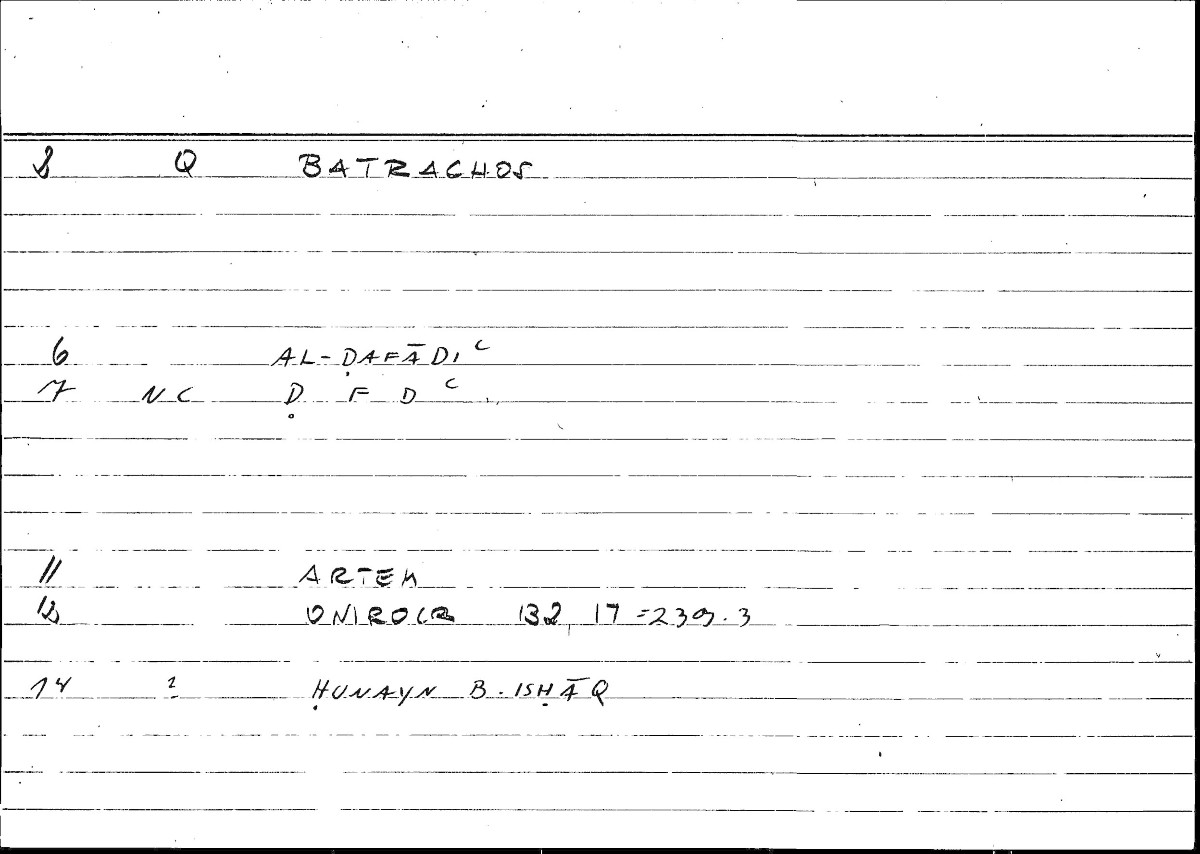 2 Q BATRACHOS
6 AL-ḌAFĀDIᶜ
7 NC Ḍ F D ᶜ
11 ARTEM
12 ONIROCR 132, 17 = 239.3
14 2 ḤUNAYN B. ISḤĀQ